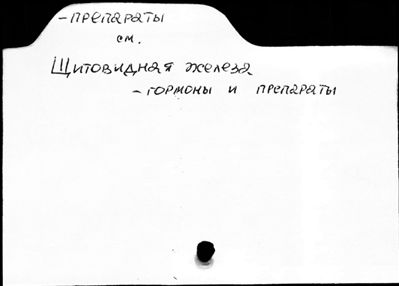 - ПРЕПАРАТЫ
см.
Щитовидная железа
- гормоны и препараты